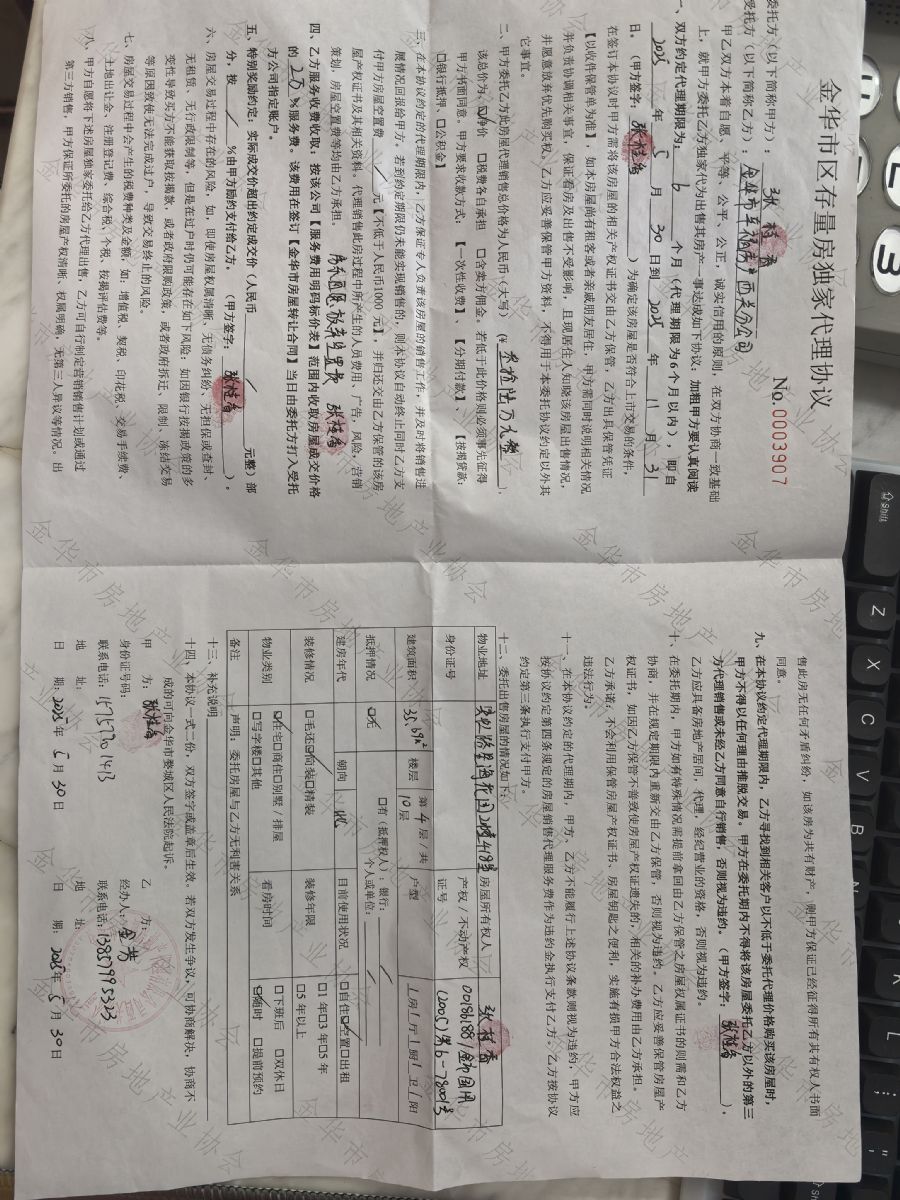 金华市区存量房独家代理协议
No.0003907
委托方（以下简称甲方）： 张桂香
受托方（以下简称乙方）：
甲乙双方本着自愿、平等、公平、公正，诚实信用的原则，在双方协商一致基础
上，就甲方委托乙方独家代为出售其房产一事达成如下协议：加粗甲方要认真阅读
一、双方约定代理期限为： 6 个月（代理期限为6个月以内），即自
2025 年 5 月 30 日到 2025 年 11 月 31
日。（甲方签字： 张桂香 ）为确定该房屋是否符合上市交易的条件，
在签订本协议时甲方需将该房屋的相关产权证书交由乙方保管，乙方出具保管凭证
【以收件保管单为准】，如本房屋尚有租客或者亲戚朋友居住，甲方需同时说明相关情况
并负责协调相关事宜，保证看房及出售不受影响，且现居住人知晓该房屋出售情况，
并愿意放弃优先购买权。乙方应妥善保管甲方资料，不得用于本委托协议约定以外其
它事宜。
二、甲方委托乙方此房屋代理销售总价格为人民币（大写）
该总价为：净价 □税费各自承担 □含卖方佣金，若低于此价格则必须事先征得
甲方书面同意，甲方要求收款方式：【一次性收费】、【分期付款】、【按揭贷款：
□银行抵押 □公积金】
三、在本协议约定的代理期限内，乙方保证专人负责该房屋的销售工作，并及时将销售进
展情况回报给甲方。若到约定期限仍未能实现销售的，则本协议自动终止同时乙方支
付甲方房屋空置费 / 元【不低于人民币1000元】，并归还交由乙方保管的该房
屋产权证书及其相关资料。代理销售此房过程中所产生的人员费用、广告，风险，营销
策划，房屋空置费等均由乙方承担。 张桂香
四、乙方服务收费收取，按该公司【服务费用明码标价表】范围内收取房屋成交价格
的 2.0 %服务费。该费用在签订【金华市房屋转让合同】当日由委托方打入受托
方公司指定账户。
五、特别奖励约定，实际成交价超出约定成交价（人民币 / 元整）部
分，按 / %由甲方励的支付给乙方。（甲方签字： 张桂香 ）。
六、房屋交易过程中存在的风险，如：即使房屋权属清晰、无债务纠纷、无担保或查封、
无租赁、无行政限制等，但是在过户时仍可能存在如下风险：如因银行按揭政策的多
变性导致买方不能获取按揭款，或者政府限购政策，或者政府拆迁、限制、冻结交易
等原因致使无法完成过户，导致交易终止的风险。
七、房屋交易过程中会产生的税费种类及金额，如：增值税、契税、印花税、交易手续费、
土地出让金、注册登记费、综合税、个税、按揭评估费等。
八、甲方自愿将下述房屋独家委托给乙方代理出售，乙方可自行制定营销销售计划或通过
第三方销售，甲方保证所委托的房屋产权清晰、权属明确，无第三人异议等情况。出
售此房无任何矛盾纠纷，如该房为共有财产，则甲方保证已经征得所有其有权人书面
同意。
九、在本协议约定代理期限内，乙方寻找到相关客户以不低于委托代理价格购买该房屋时，
甲方不得以任何理由推脱交易。甲方在委托期内不得将该房屋委托乙方以外的第三
方代理销售或未经乙方同意自行销售，否则视为违约。（甲方签字： 张桂香 ）。
乙方应具备房地产居间，代理，经纪营业的资格，否则视为违约。
十、在委托期内，甲方如有特殊情况需提前拿回由乙方保管之房屋权属证书的则需和乙方
协商，并在规定期限内重新交由乙方保管，否则视为违约。乙方应妥善保管房屋产
权证书，如因乙方保管不善致使房屋产权证遗失的，相关的补办费用由乙方承担。
乙方承诺，不会利用保管房屋产权证书、房屋钥匙之便利，实施有损甲方合法权益之
违法行为。
十一、在本协议约定的代理期内，甲方、乙方不能履行上述协议条款则视为违约，甲方应
按协议约定第四条规定的房屋销售代理服务费作为违约金执行支付乙方。乙方按协议
约定第三条执行支付甲方。
十二、委托出售房屋的情况如下：
物业地址 房屋所有权人 张桂香
身份证号 产权/不动产权证号
建筑面积 35.69m² 楼层 第4层/共10层 户型 1房1厅1厨1卫1阳
抵押情况 ☑无 □有（抵押权人）：银行： 个人或单位：
建房年代 朝向 目前使用状况 □自住☑空置□出租
装修情况 □毛还☑简装□精装 装修年限 □1年□3年□5年 □5年以上
物业类别 ☑住宅□商住□别墅/排屋 □写字楼□其他 看房时间 □下班后 □双休日 ☑随时 □提前预约
备注 声明：委托房屋与乙方无利害关系
十三、补充说明
十四、本协议一式二份，双方签字或盖章后生效。若双方发生争议，可协商解决，协商不
成的可向金华市婺城区人民法院起诉。
甲 方： 张桂香 乙 方：
身份证号码： 经办人：
联系电话：15757901413 联系电话：13857995323
地 址： 地 址：
日 期：2025年5月30日 日 期：2025年5月30日